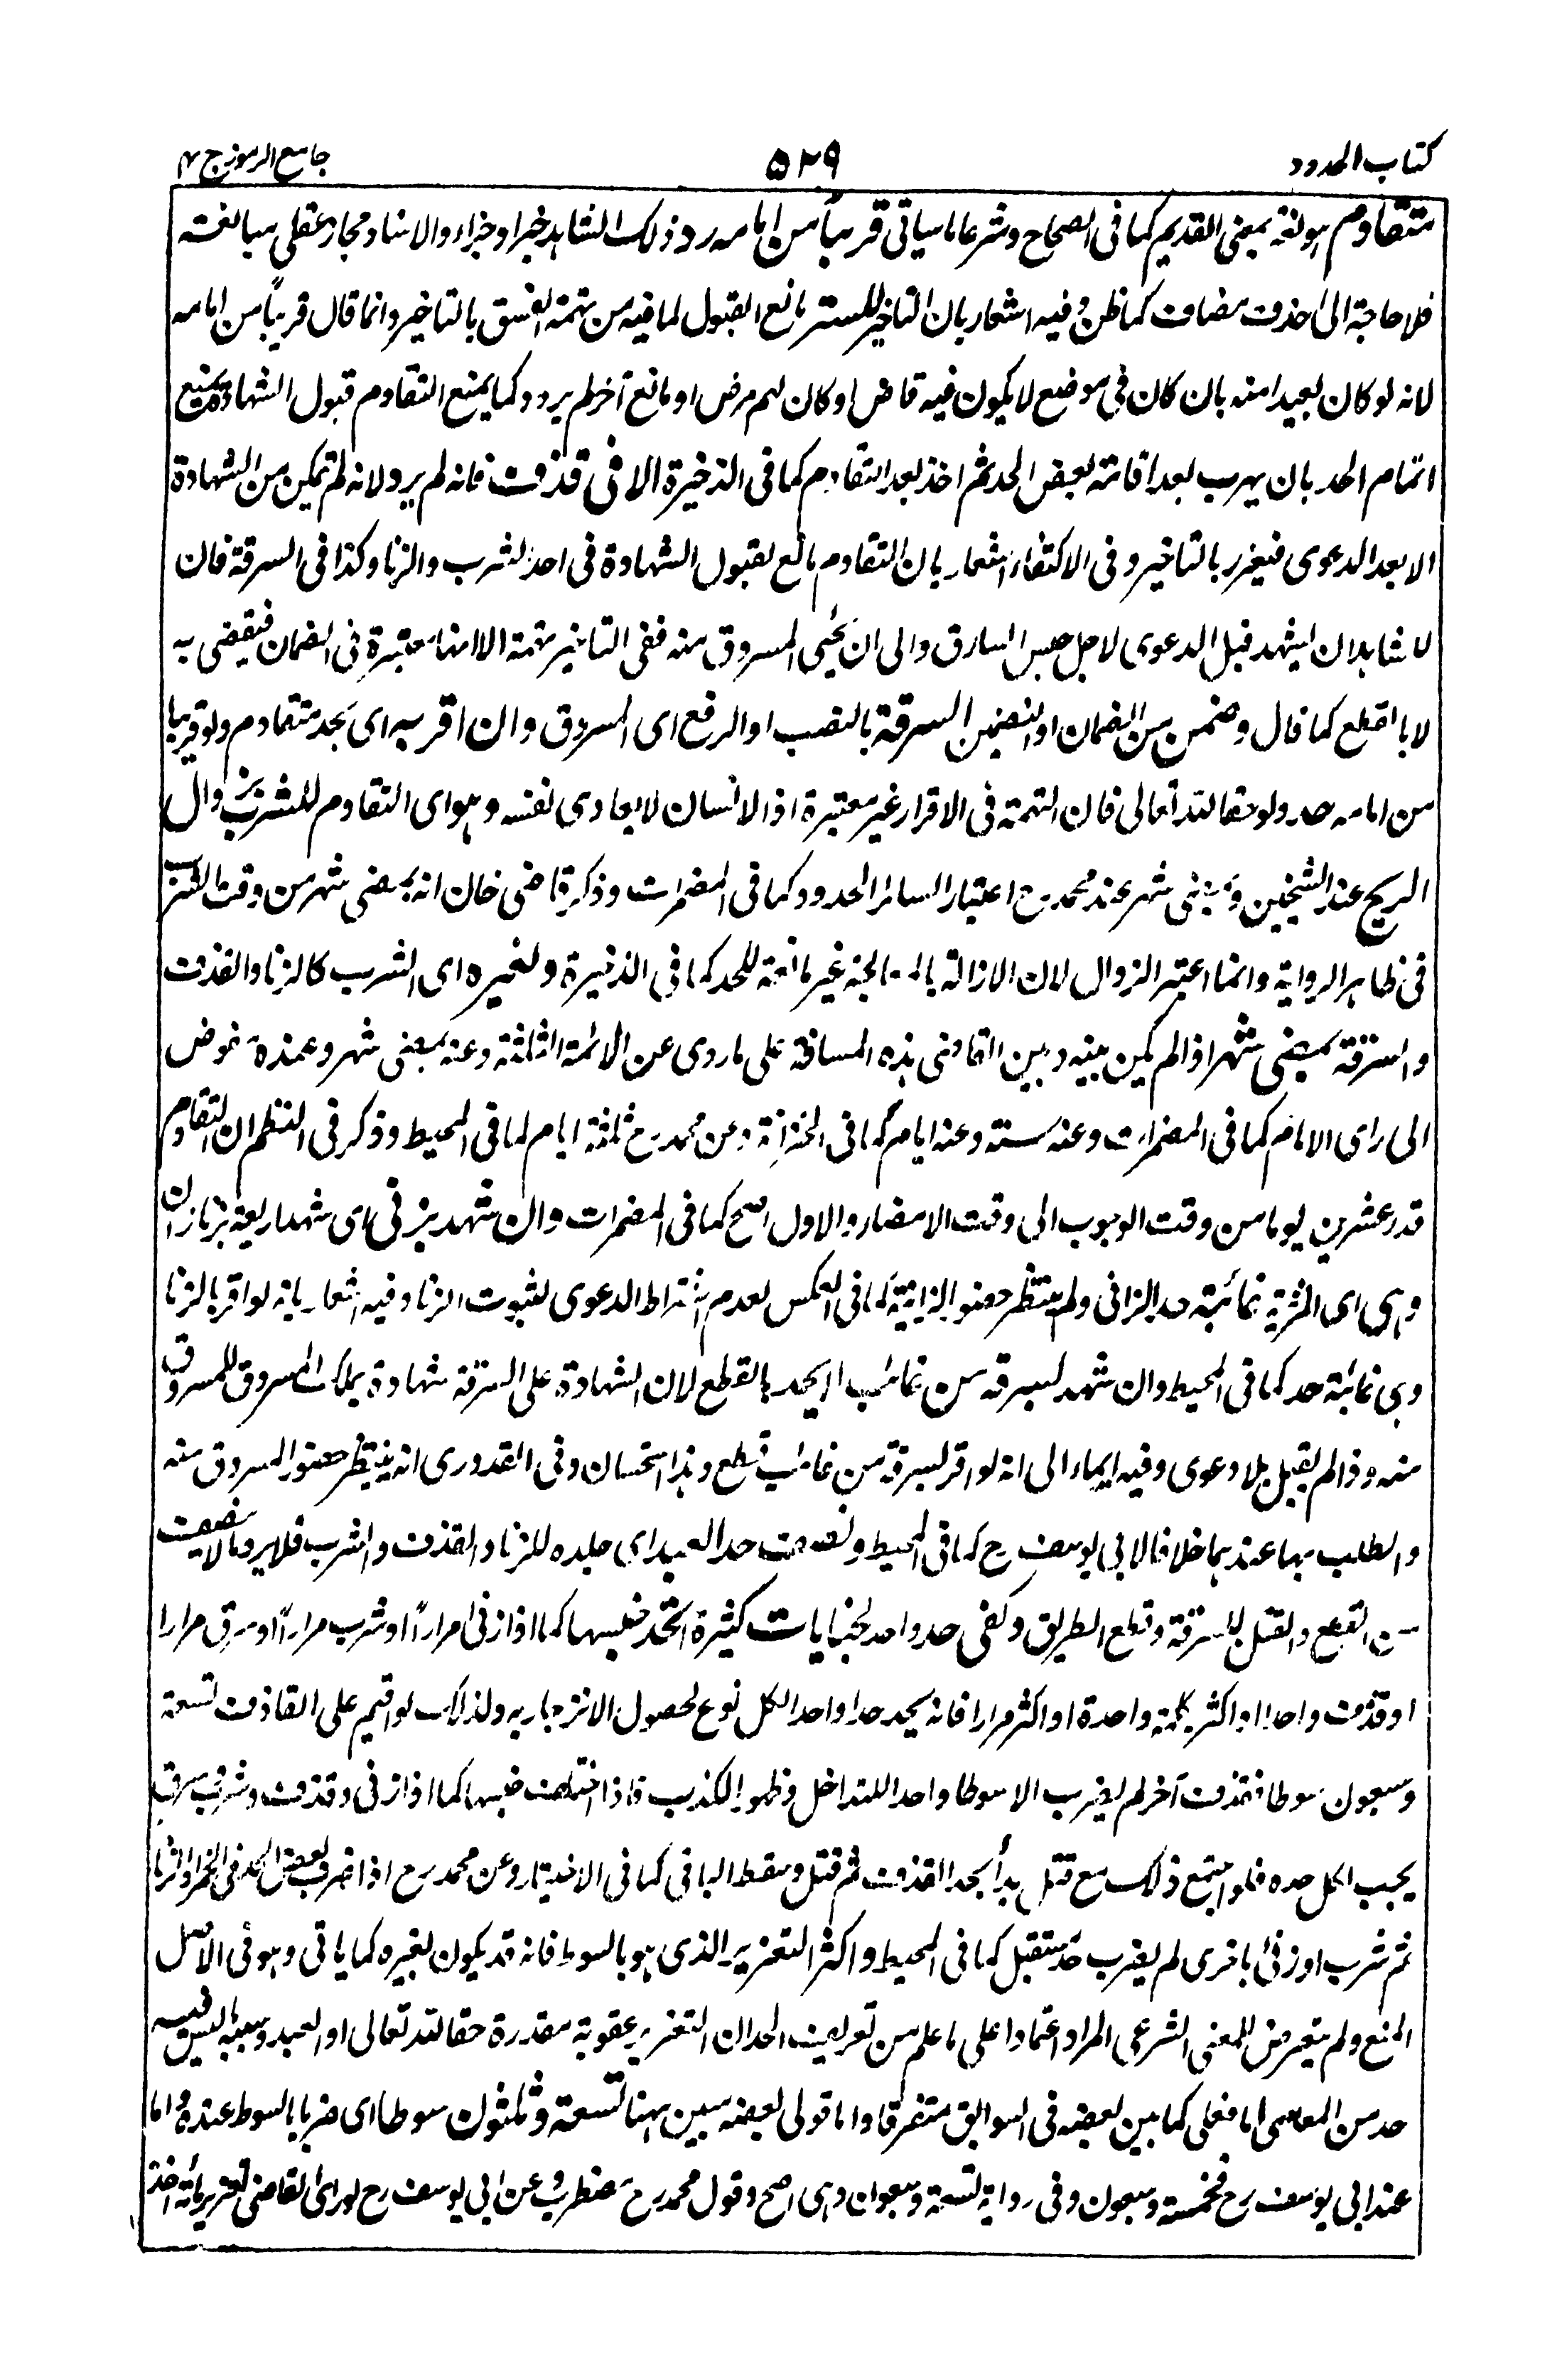 كتاب الحدود ٥٢٩ جامع الرموز ج ٤
متقادم هو لغة بمعنى القديم كما في الصحاح وشرعا ما سياتي قريباً من امامه رد ذلك الشاهد خبرا وجزاء والاسناد مجاز عقلي مبالغة
فلا حاجة الى حذف مضاف كما ظن وفيه اشعار بان التاخير للستر مانع القبول لما فيه من تهمة الفسق بالتاخير وانما قال قريباً من امامه
لانه لو كان بعيدا منه بان كان في موضع لا يكون فيه قاض او كان لهم مرض او مانع آخر لم يرد وكما يمنع التقادم قبول الشهادة يمنع
اتمام الحد بان يهرب بعد اقامة بعض الحد ثم اخذ بعد التقادم كما في الذخيرة الا في قذف فانه لم يرد لانه لم تمكن من الشهادة
الا بعد الدعوى فيعزر بالتاخير وفي الاكتفاء اشعار بان التقادم مانع لقبول الشهادة في احد الشرب والزنا وكذا في السرقة فان
لا شاهدان يشهد قبل الدعوى لاجل حبس السارق والى ان يجئ المسروق منه ففي التاخير تهمة الا انها معتبرة في الضمان فيقضى به
لا بالقطع كما قال وضمن من الضمان او التضمين السرقة بالنصب او الرفع اى المسروق وان اقر به اى بحد متقادم ولو قريبا
من امامه حد ولو حقا لله تعالى فان التهمة في الاقرار غير معتبرة اذ الانسان لا يعادى نفسه وهو اى التقادم للشرب بزوال
الريح عند الشيخين وبمضى شهر عند محمد رح اعتبارا لسائر الحدود كما في المضمرات وذكر قاضى خان انه بمضى شهر من وقت الشرب
في ظاهر الرواية وانما اعتبر الزوال لان الازالة بالمعالجة غير مانعة للحد كما في الذخيرة ولغيره اى الشرب كالزنا والقذف
والسرقة بمضى شهر اذا لم يكن بينه وبين القاضى هذه المسافة على ما روى عن الائمة الثلثة وعنه بمضى شهر وعنده فوض
الى راى الامام كما في المضمرات وعنه سنة وعنه ايام كما في الخزانة وعن محمد رح ثلثة ايام كما في المحيط وذكر في النظم ان التقادم
قدر عشرين يوما من وقت الوجوب الى وقت الامضاء والاول اصح كما في المضمرات وان شهد بزنى اى شهد اربعة بزنا زان
وهى اى المزنية غائبة حد الزانى ولم ينتظر حضور الزانية كما في العكس لعدم اشتراط الدعوى لثبوت الزنا وفيه اشعار بانه لو اقر بالزنا
وهى غائبة حد كما في المحيط وان شهد بسرقة من غائب لا يحد بالقطع لان الشهادة على السرقة شهادة بملك المسروق للمسروق
منه وذا لم يقبل بلا دعوى وفيه ايماء الى انه لو اقر بسرقة من غائب قطع وهذا استحسان وفي القدورى انه ينتظر حضور المسروق منه
والطلب بها عندهما خلافا لابى يوسف رح كما في المحيط ونصف حد العبد اى جلده للزنا والقذف والشرب فلا يرد ما لا ينصف
من القطع والقتل للسرقة وقطع الطريق وكفى حد واحد لجنايات كثيرة اتحد جنسها كما اذا زنى مراراً او شرب مراراً او سرق مرارا
او قذف واحدا او اكثر بكلمة واحدة او اكثر مرارا فانه يحد حدا واحدا لكل نوع لحصول الانزجار به ولذلك لو اقيم على القاذف تسعة
وسبعون سوطا فقذف آخر لم يضرب الا سوطا واحدا للتداخل وظهور الكذب فاذا اختلف جنسها كما اذا زنى وقذف وشرب وسرق
يجب لكل حده فلو اجتمع ذلك مع قتل بدأ بحد القذف ثم قتل وسقط الباقى كما في الاختيار وعن محمد رح اذا ضرب بعض الحد في الخمر او الزنا
ثم شرب او زنى باخرى لم يضرب حد مستقبل كما في المحيط واكثر التعزير الذى هو بالسوط فانه قد يكون بغيره كما ياتى وهو في الاصل
المنع ولم يتعرض للمعنى الشرعى المراد اعتمادا على ما علم من تعريف الحد ان التعزير عقوبة مقدرة حقا لله تعالى او العبد وسببه ليس فيه
حد من المعاصى اما فعلى كما بين بعضه في السوابق متفرقا واما قولى بعضه سبين ههنا تسعة وثلثون سوطا اى ضربا بالسوط عنده واما
عند ابى يوسف رح فخمسة وسبعون وفى رواية تسعة وسبعون وهى اصح وقول محمد رح مضطرب وعن ابى يوسف رح لو راى القاضى تعزير مائة اخذ